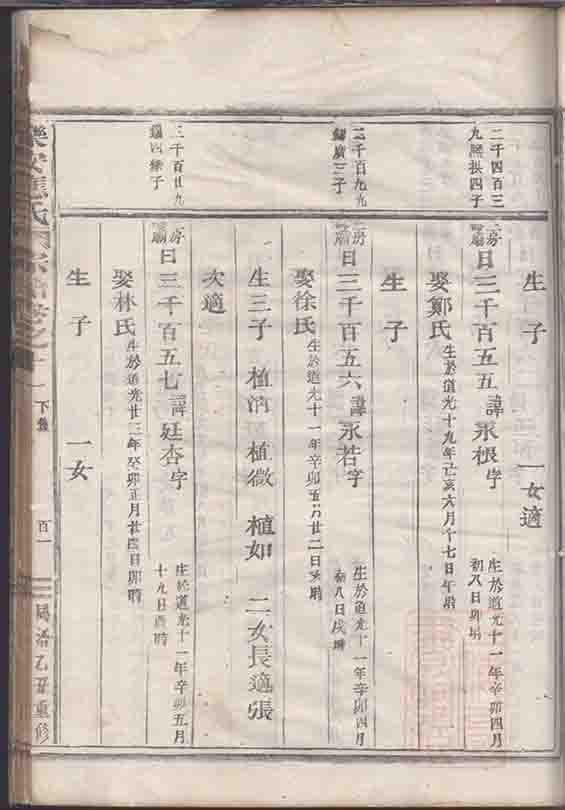 生子 一女適
二千四百三
九熙拱四子
房日三千百五五諱永根字 生於道光十一年辛卯四月
初八日卯時
娶鄭氏生於道光十九年己亥六月十七日午時
生子
二千百九九
廣三子
房日三千百五六諱永若字 生於道光十一年辛卯四月
初八日戌時
娶徐氏生於道光十一年辛卯五月廿二日亥時
生三子 植消 植微 植如 二女長適張
次適
三千百廿九
四子
房日三千百五七諱廷杏字 生於道光十一年辛卯五月
十九日酉時
娶林氏生於道光廿三年癸卯正月廿四日卯時
生子 一女
樂安 氏 下 百一 同治乙丑重修